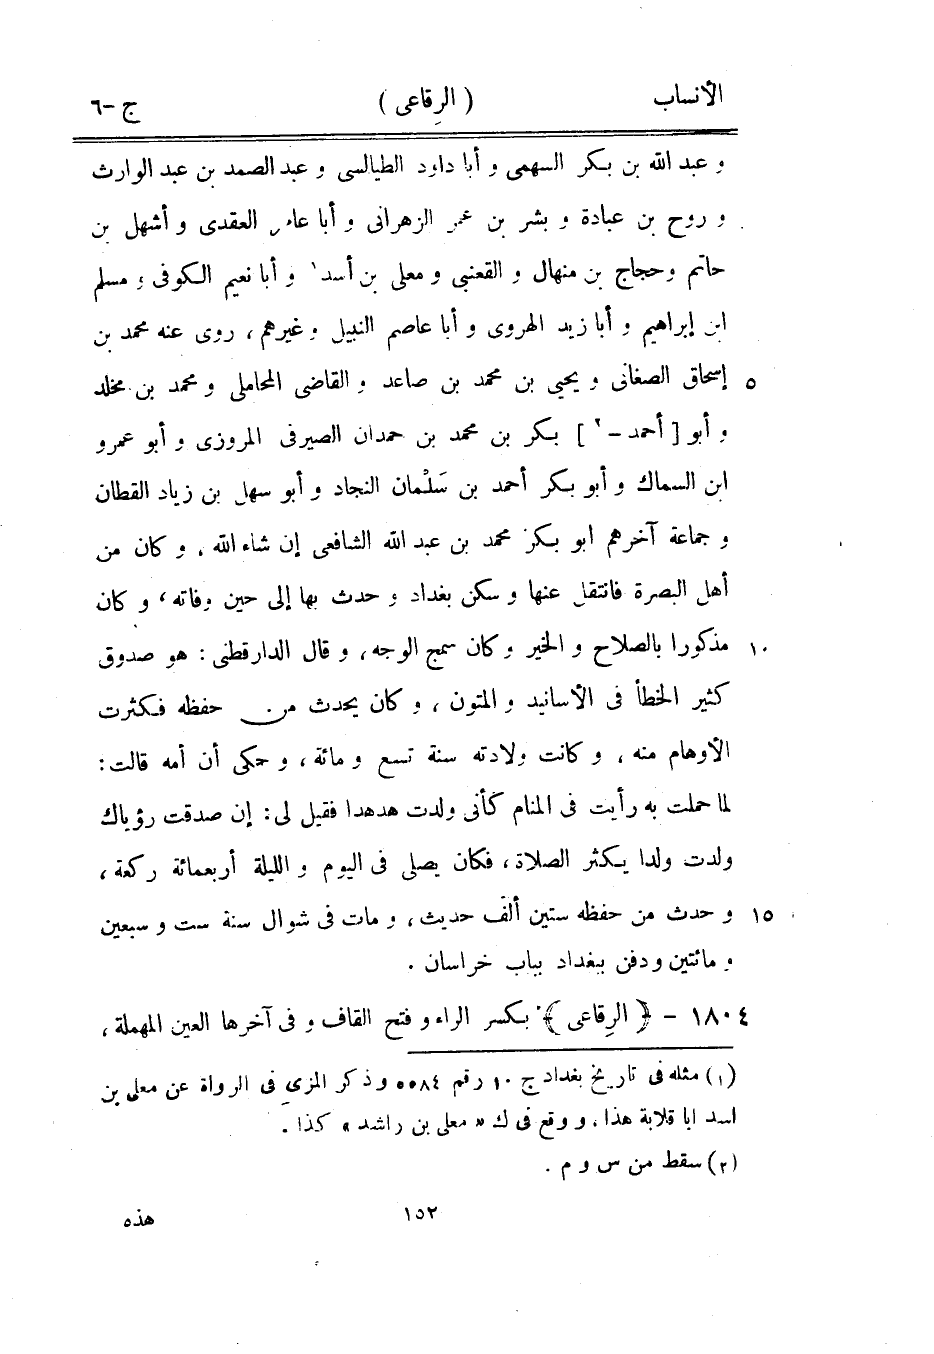 الأنساب ( الرِقاعى ) ج -٦
و عبد الله بن بكر السهمى و أبا داود الطيالسى و عبد الصمد بن عبد الوارث
و روح بن عبادة و بشر بن عمر الزهرانى و أبا عامر العقدى و أشهل بن
حاتم و حجاج بن منهال و القعنبى و معلى بن أسد١ و أبا نعيم الكوفى و مسلم
ابن إبراهيم و أبا زيد الهروى و أبا عاصم النبيل و غيرهم ، روى عنه محمد بن
٥ إسحاق الصغانى و يحيى بن محمد بن صاعد و القاضى المحاملى و محمد بن مخلد
و أبو [ أحمد - ٢ ] بكر بن محمد بن حمدان الصيرفى المروزى و أبو عمرو
ابن السماك و أبو بكر أحمد بن سَلْمان النجاد و أبو سهل بن زياد القطان
و جماعة آخرهم ابو بكر محمد بن عبد الله الشافعى إن شاء الله ، و كان من
أهل البصرة فانتقل عنها و سكن بغداد و حدث بها إلى حين وفاته ، و كان
١٠ مذكورا بالصلاح و الخير و كان سمج الوجه ، و قال الدارقطنى : هو صدوق
كثير الخطأ فى الأسانيد و المتون ، و كان يحدث من حفظه فكثرت
الأوهام منه ، و كانت ولادته سنة تسع و مائة ، و حكى أن أمه قالت :
لما حملت به رأيت فى المنام كأنى ولدت هدهدا فقيل لى : إن صدقت رؤياك
ولدت ولدا يكثر الصلاة ، فكان يصلى فى اليوم و الليلة أربعمائة ركعة ،
١٥ و حدث من حفظه ستين ألف حديث ، و مات فى شوال سنة ست و سبعين
و مائتين و دفن ببغداد بباب خراسان .
١٨٠٤ - ﴿ الرِقاعى ﴾ بكسر الراء و فتح القاف و فى آخرها العين المهملة ،
(١) مثله فى تاريخ بغداد ج ١٠ رقم ٥٥٨٤ و ذكر المزى فى الرواة عن معلى بن
اسد ابا قلابة هذا ، و وقع فى ك « معلى بن راشد » كذا .
(٢) سقط من س و م .
١٥٢ هذه